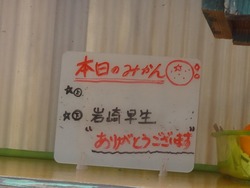 本日のみかん
☆①
☆② 岩崎早生
"ありがとうございます"